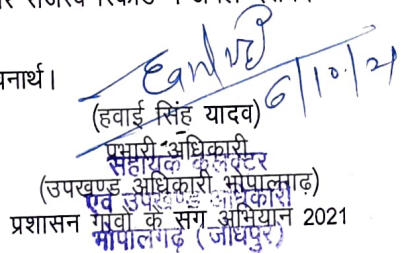 र राजस्व रिकॉर्ड
नार्थ।
6/10/21
(हवाई सिंह यादव)
प्रभारी अधिकारी
सहायक कलक्टर
(उपखण्ड अधिकारी भोपालगढ़)
एवं उपखण्ड अधिकारी
प्रशासन गांवो के संग अभियान 2021
भोपालगढ़ (जोधपुर)